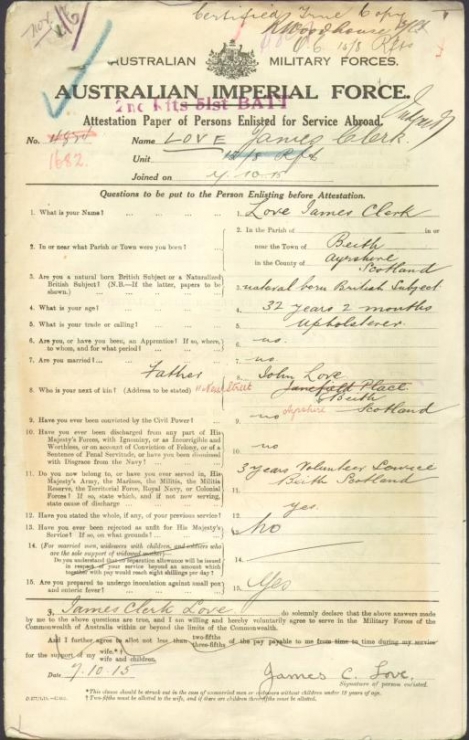 Certified True Copy
Woodhouse
O.C. 12/5 Rfts
AUSTRALIAN MILITARY FORCES.
AUSTRALIAN IMPERIAL FORCE.
2nd Rfts 51st BATT
Attestation Paper of Persons Enlisted for Service Abroad.
No. 1682. Name LOVE James Clerk.
Unit 12/5 Rfts
Joined on 7.10.15
Questions to be put to the Person Enlisting before Attestation.
1. What is your Name? 1. Love James Clerk
2. In or near what Parish or Town were you born? 2. In the Parish of in or
near the Town of Beith
in the County of Ayrshire Scotland
3. Are you a natural born British Subject or a Naturalized British Subject? (N.B.—If the latter, papers to be shown.) 3. natural born British Subject
4. What is your age? 4. 32 years 2 months
5. What is your trade or calling? 5. Upholsterer
6. Are you, or have you been, an Apprentice? If so, where, to whom, and for what period? 6. no.
7. Are you married? 7. no
8. Who is your next of kin? (Address to be stated) Father 8. John Love
New Street Place
Beith
Ayrshire Scotland
9. Have you ever been convicted by the Civil Power? 9. no
10. Have you ever been discharged from any part of His Majesty's Forces, with Ignominy, or as Incorrigible and Worthless, or on account of Conviction of Felony, or of a Sentence of Penal Servitude, or have you been dismissed with Disgrace from the Navy? 10. no
11. Do you now belong to, or have you ever served in, His Majesty's Army, the Marines, the Militia, the Militia Reserve, the Territorial Force, Royal Navy, or Colonial Forces? If so, state which, and if not now serving, state cause of discharge 11. 3 years Volunteer Service
Beith Scotland
12. Have you stated the whole, if any, of your previous service? 12. yes.
13. Have you ever been rejected as unfit for His Majesty's Service? If so, on what grounds? 13. No
14. (For married men, widowers with children, and soldiers who are the sole support of widowed mother—
Do you understand that no separation allowance will be issued in respect of your service beyond an amount which together with pay would reach eight shillings per day? 14.
15. Are you prepared to undergo inoculation against small pox and enteric fever? 15. Yes
I, James Clerk Love. do solemnly declare that the above answers made
by me to the above questions are true, and I am willing and hereby voluntarily agree to serve in the Military Forces of the
Commonwealth of Australia within or beyond the limits of the Commonwealth.
And I further agree to allot not less than two-fifths three-fifths of the pay payable to me from time to time during my service
for the support of my wife.*†
wife and children.
Date 7.10.15 James C. Love.
Signature of person enlisted.
*This clause should be struck out in the case of unmarried men or widowers without children under 18 years of age.
†Two-fifths must be allotted to the wife, and if there are children three-fifths must be allotted.